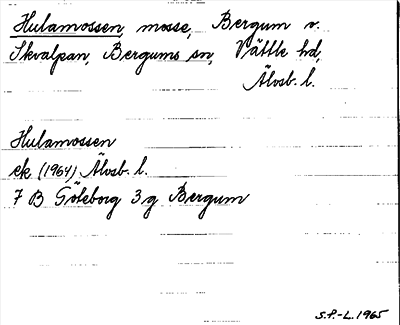 Hulamossen, mosse, Bergum v.
Skvalpan, Bergums sn, Vättle hd,
Älvsb. l.
Hulamossen
ek (1964) Älvsb. l.
7 B Göteborg 3 g Bergum
S.P.-L. 1965